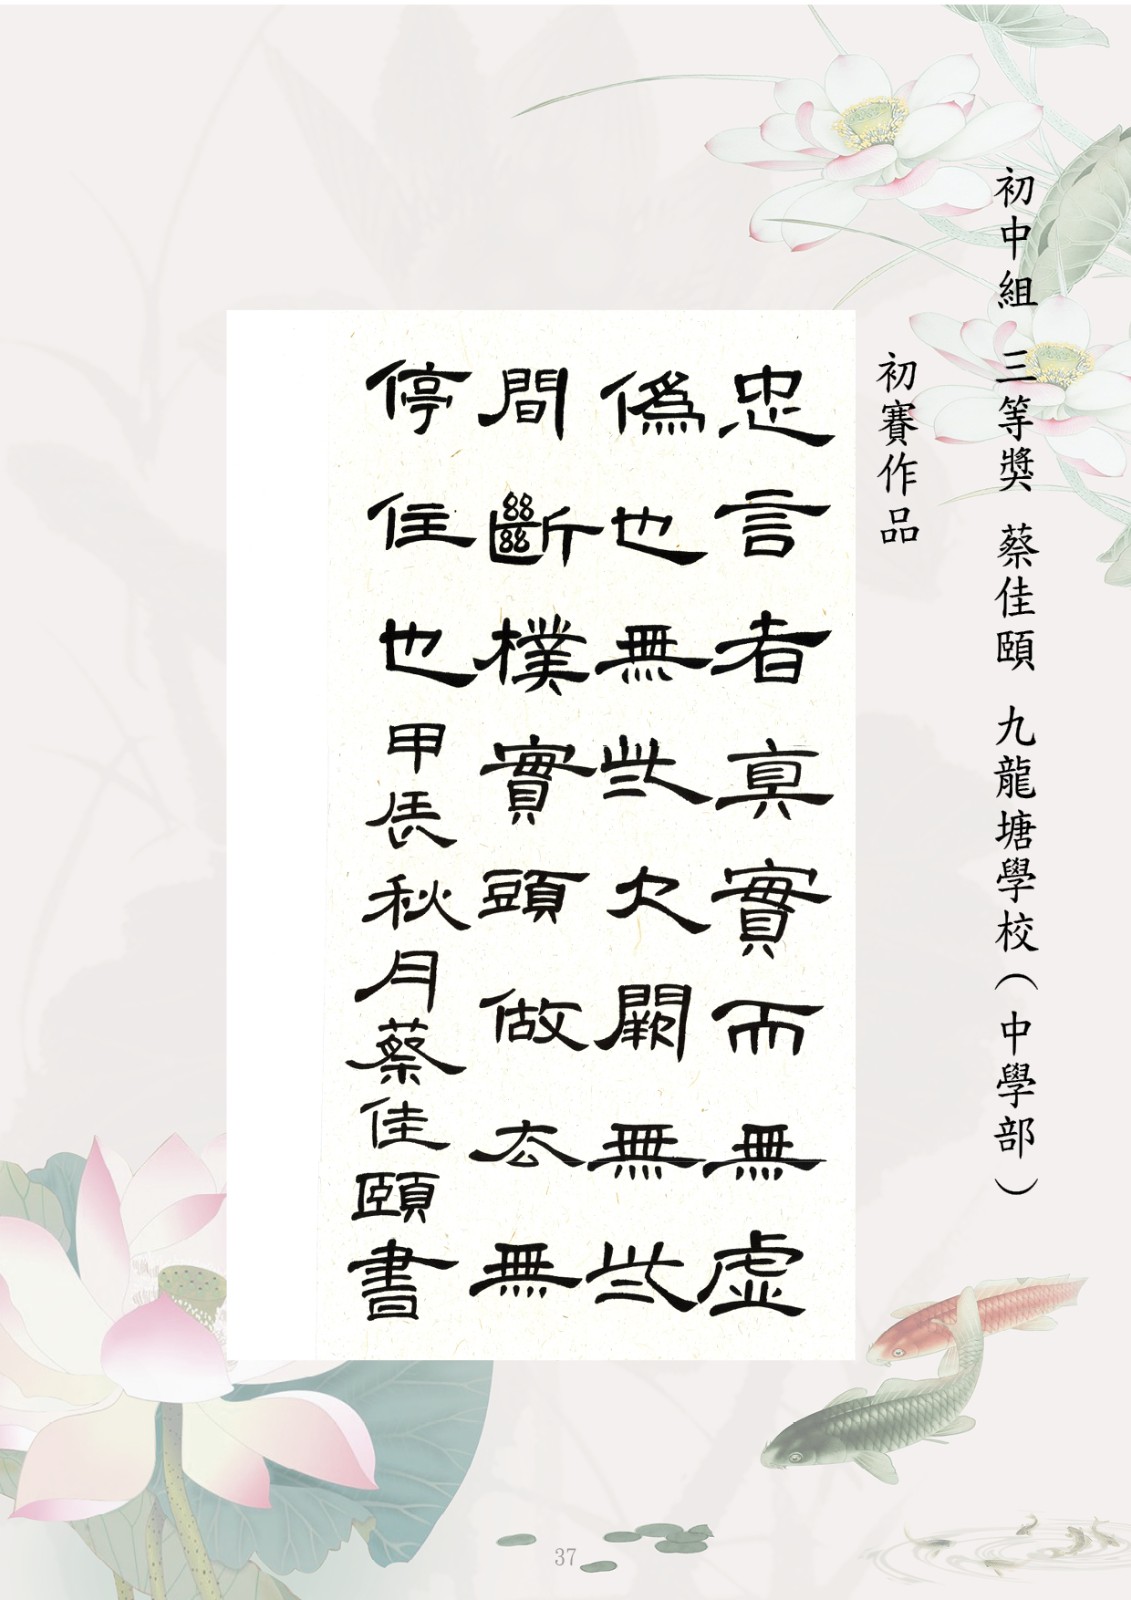 初中組 三等獎 蔡佳頤 九龍塘學校（中學部）
初賽作品
忠言者真實而無虛
偽也無些欠闕無些
間斷樸實頭做去無
停住也甲辰秋月蔡佳頤書
37